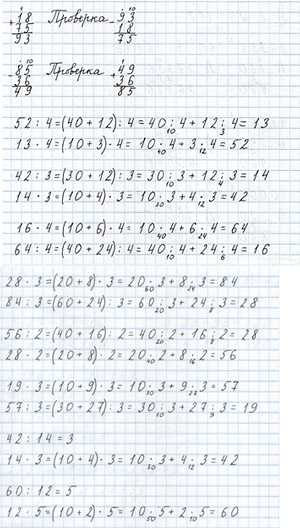 +18 Проверка -93
75 18
93 75
-85 Проверка +49
36 36
49 85
52 : 4 = (40 + 12) : 4 = 40 : 4 + 12 : 4 = 13
10 3
13 · 4 = (10 + 3) · 4 = 10 · 4 + 3 · 4 = 52
40 12
42 : 3 = (30 + 12) : 3 = 30 : 3 + 12 : 3 = 14
10 4
14 · 3 = (10 + 4) · 3 = 10 · 3 + 4 · 3 = 42
30 12
16 · 4 = (10 + 6) · 4 = 10 · 4 + 6 · 4 = 64
40 24
64 : 4 = (40 + 24) : 4 = 40 : 4 + 24 : 4 = 16
10 6
28 · 3 = (20 + 8) · 3 = 20 · 3 + 8 · 3 = 84
60 24
84 : 3 = (60 + 24) : 3 = 60 : 3 + 24 : 3 = 28
20 8
56 : 2 = (40 + 16) : 2 = 40 : 2 + 16 : 2 = 28
20 8
28 · 2 = (20 + 8) · 2 = 20 · 2 + 8 · 2 = 56
40 16
19 · 3 = (10 + 9) · 3 = 10 · 3 + 9 · 3 = 57
30 27
57 : 3 = (30 + 27) : 3 = 30 : 3 + 27 : 3 = 19
10 9
42 : 14 = 3
14 · 3 = (10 + 4) · 3 = 10 · 3 + 4 · 3 = 42
30 12
60 : 12 = 5
12 · 5 = (10 + 2) · 5 = 10 · 5 + 2 · 5 = 60
50 10